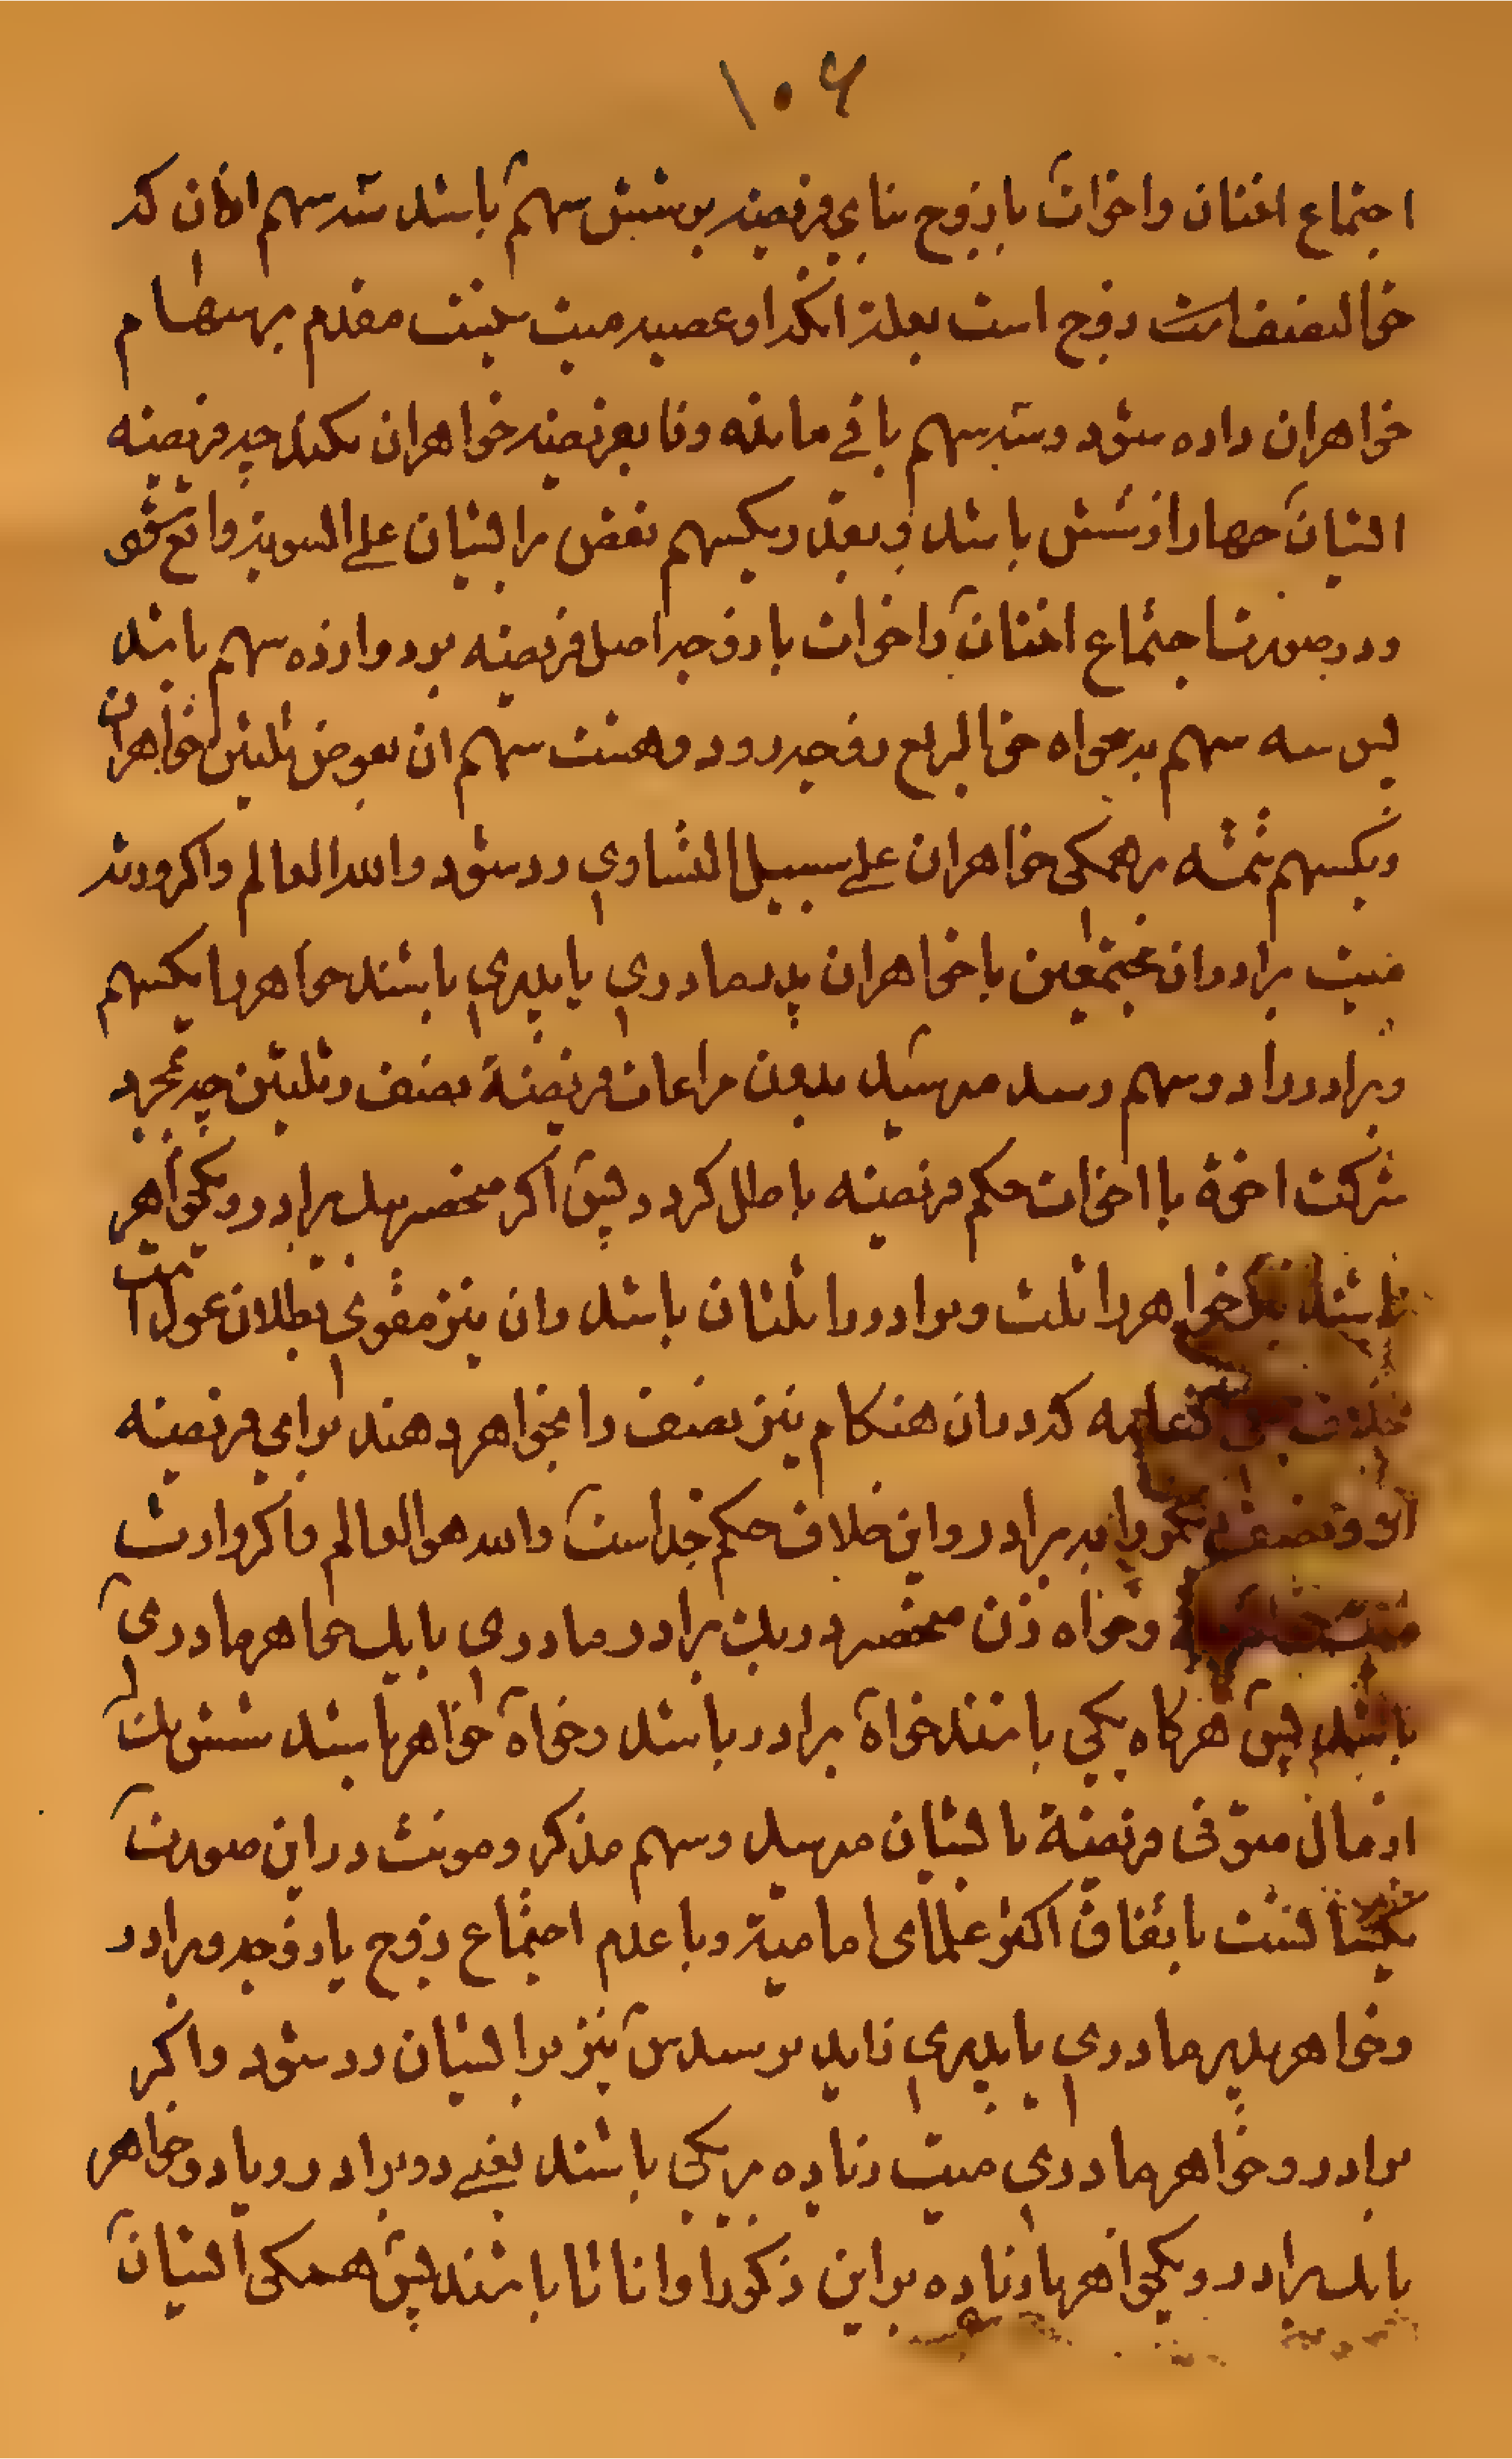 ۱۰۶
اجتماع اختان واخوات با زوج بنای فریضه بر شش سهم باشد سه سهم ازان که
حق النصف است زوج است بعلة انکه او عصبه میت نیست مقدم بر سهام
خواهران داده شود و سه سهم باقی مانده وفا بفریضه خواهران نکند چه فریضه
ایشان چهار از شش باشد و بقدر یکسهم نقص بر ایشان علی السویه واقع شود
و در صورت اجتماع اختان و اخوات با زوجه اصل فریضه بر دوازده سهم باشد
پس سه سهم بدعواه حق الربع زوجه رود و هشت سهم ان بعوض ثلثین خواهران
و یکسهم تتمه بر همکی خواهران علی سبیل التساوی رد شود والله العالم واکر ورثه
میت برادران مجتمعین با خواهران پدر مادری یا پدری باشند خواهر را یکسهم
و برادر را دو سهم رسد میرسد بدون مراعات فریضة نصف و ثلثین چه بمجرد
شرکت اخوة با اخوات حکم فریضه باطل کردد پس اکر منحصر بیک برادر و یکخواهر
باشد یکخواهر را ثلث و برادر را ثلثان باشد وان نیز مقوی بطلان عول است
بخلاف عامه که دران هنکام نیز نصف را بخواهر دهند برای فریضه
او و نصف دیکر را به برادر و این خلاف حکم خداست والله هو العالم واکر وارث
میت وخواه زن منحصر در یک برادر مادری یا یک خواهر مادری
باشد پس هرکاه یکی باشند خواه برادر باشد و خواه خواهر باشد شش یک
از مال متوفی فریضة با ایشان میرسد و سهم مذکر و مونث در این صورت
یکسانست باتفاق اکثر علمای امامیة و با عدم اجتماع زوج یا زوجه و برادر
وخواهر پدر مادری یا پدری زاید بر سدس نیز بر ایشان رد شود واکر
برادر و خواهر مادری میت زیاده بر یکی باشند یعنی دو برادر و یا دو خواهر
یا یک برادر و یکخواهر یا زیاده بر این ذکورا و اناثا باشند پس همکی ایشان